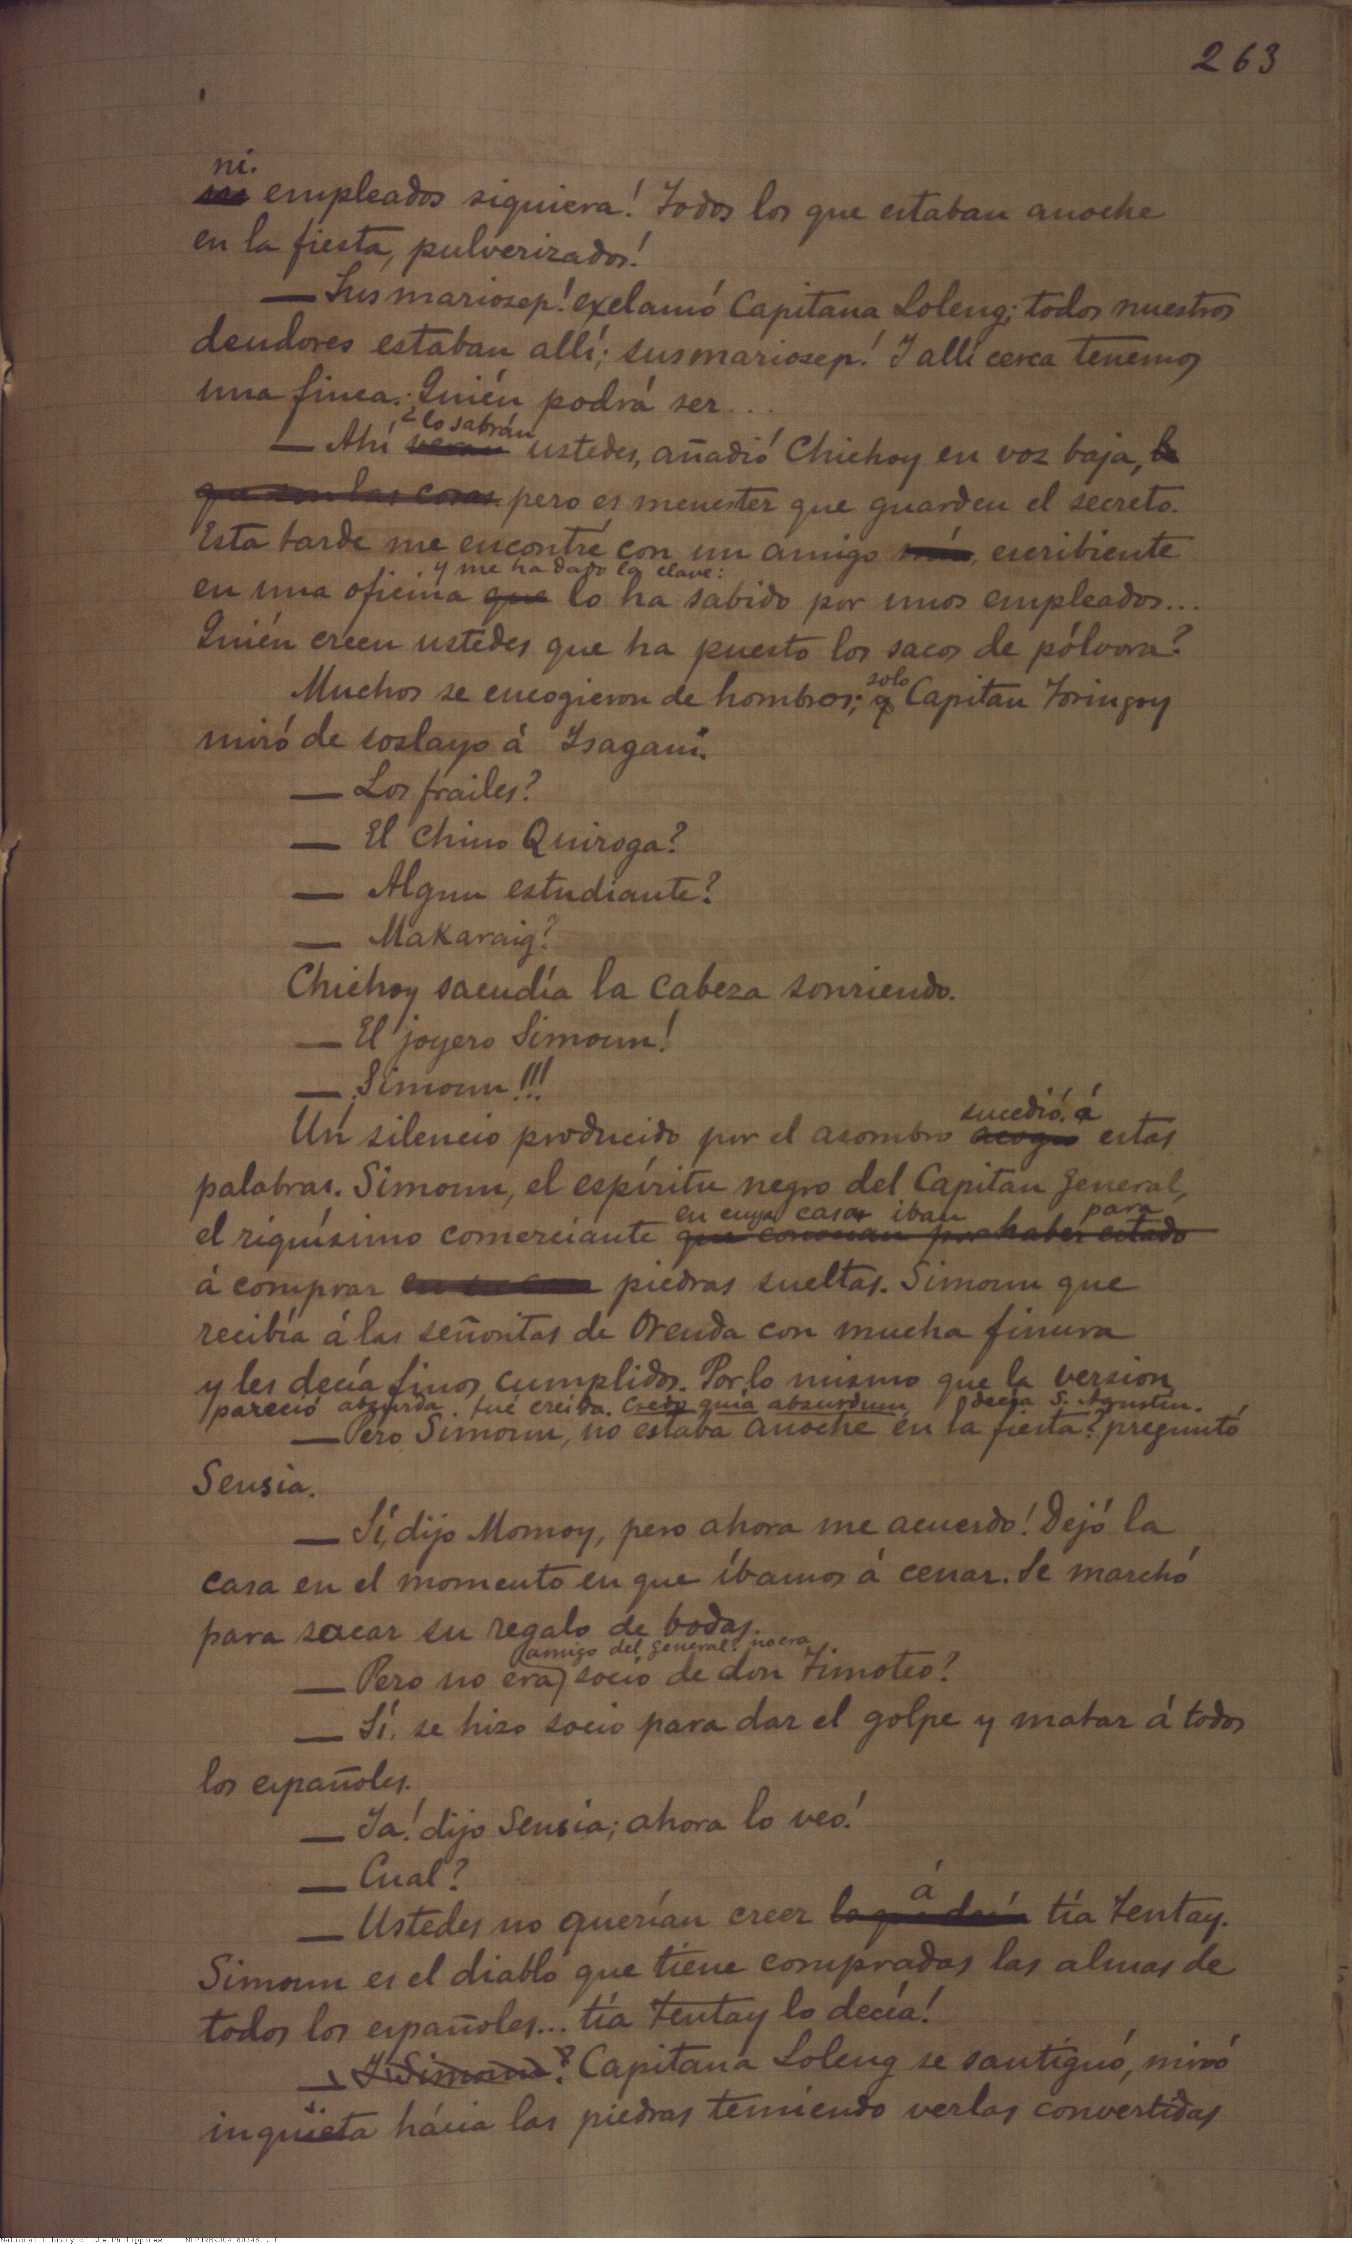 263
ni.
empleados siquiera! Todos los que estaban anoche
en la fiesta, pulverizados!
— Susmariosep! exclamó Capitana Loleng; todos nuestros
deudores estaban allí; susmariosep! Y allí cerca tenemos
una finca. ¿Quién podrá ser...
lo sabrán
— Ahí veran ustedes, añadió Chichoy en voz baja, lo
que son las cosas pero es menester que guarden el secreto.
Esta tarde me encontré con un amigo mío, escribiente
y me ha dado la clave:
en una oficina que lo ha sabido por unos empleados...
Quién creen ustedes que ha puesto los sacos de pólvora?
solo
Muchos se encogieron de hombros; y Capitan Toringoy
miró de soslayo á Isagani.
— Los frailes?
— El chino Quiroga?
— Algun estudiante?
— Makaraig?
Chichoy sacudía la cabeza sonriendo.
— El joyero Simoun!
— Simoun!!!
sucedió á
Un silencio producido por el asombro acogió estas
palabras. Simoun, el espíritu negro del Capitan General,
en cuya casa iban para
el riquísimo comerciante que conocian por haber estado
á comprar en su casa piedras sueltas. Simoun que
recibía á las señoritas de Orenda con mucha finura
y les decía finos cumplidos. Por lo mismo que la version
pareció absurda fué creida. Credo quia absurdum, decía S. Agustin.
— Pero Simoun, no estaba anoche en la fiesta? preguntó
Sensia.
— Sí, dijo Momoy, pero ahora me acuerdo! Dejó la
casa en el momento en que íbamos á cenar. Se marchó
para sacar su regalo de bodas.
amigo del General? no era
— Pero no era socio de don Timoteo?
— Sí. se hizo socio para dar el golpe y matar á todos
los españoles.
— Ya! dijo Sensia; ahora lo veo!
— Cual?
á
— Ustedes no querían creer lo que decía tía Tentay.
Simoun es el diablo que tiene compradas las almas de
todos los españoles... tía Tentay lo decía!
— Y Simoun? Capitana Loleng se santiguó, miró
inquieta hácia las piedras temiendo verlas convertidas